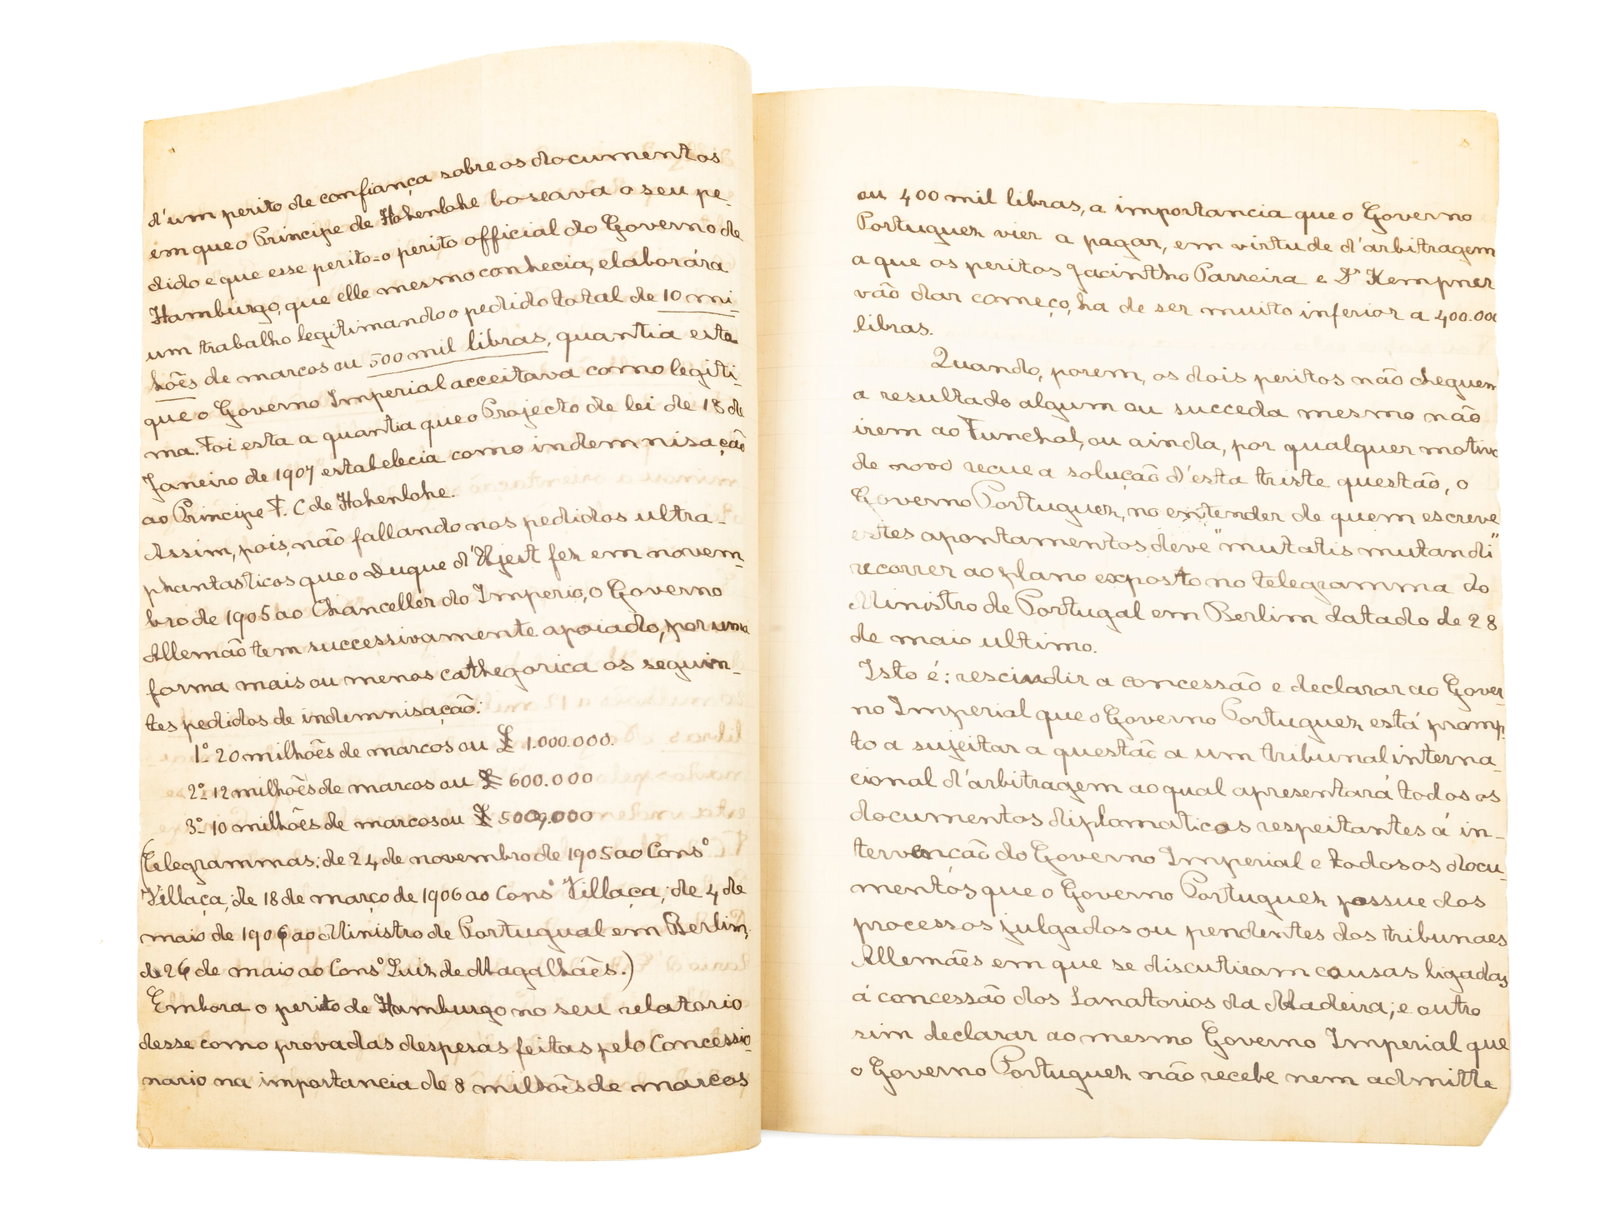 d'um perito de confiança sobre os documentos
em que o Principe de Hohenlohe baseava o seu pe-
dido e que esse perito - o perito official do Governo de
Hamburgo, que elle mesmo conhecia, elaborára
um trabalho legitimando o pedido total de 10 mi-
lhões de marcos ou 500 mil libras, quantia esta
que o Governo Imperial acceitava como legiti-
ma. Foi esta a quantia que o Projecto de lei de 18 de
Janeiro de 1907 estabelecia como indemnisação
ao Principe F. C de Hohenlohe.
Assim, pois, não fallando nos pedidos ultra-
phantasticos que o Duque d'Ujest fez em novem-
bro de 1905 ao Chanceller do Imperio, o Governo
Allemão tem successivamente apoiado, por uma
forma mais ou menos cathegorica os seguin-
tes pedidos de indemnisação:
1º 20 milhões de marcos ou £ 1.000.000.
2º 12 milhões de marcos ou £ 600.000
3º 10 milhões de marcos ou £ 500,000
(Telegrammas: de 24 de novembro de 1905 ao Consº
Villaça; de 18 de março de 1906 ao Consº Villaça; de 4 de
maio de 1906 ao Ministro de Portugual em Berlim,
de 26 de maio ao Consº Luiz de Magalhães.)
Embora o perito de Hamburgo no seu relatorio
désse como provadas despesas feitas pelo Concessio-
nario na importancia de 8 milhões de marcos
ou 400 mil libras, a importancia que o Governo
Portuguez vier a pagar, em virtude d'arbitragem
a que os peritos Jacintho Parreira e Dr Kempner
vão dar começo, ha de ser muito inferior a 400.000
libras.
Quando, porem, os dois peritos não cheguem
a resultado algum ou succeda mesmo não
irem ao Funchal, ou ainda, por qualquer motivo
de novo recue a solução d'esta triste questão, o
Governo Portuguez, no entender de quem escreve
estes apontamentos, deve "mutatis mutandi"
recorrer ao plano exposto no telegramma do
Ministro de Portugal em Berlim datado de 28
de maio ultimo.
Isto é: rescindir a concessão e declarar ao Gover-
no Imperial que o Governo Portuguez está promp-
to a sujeitar a questão a um tribunal interna-
cional d'arbitragem ao qual apresentará todos os
documentos diplomaticos respeitantes á in-
tervenção do Governo Imperial e todos os docu-
mentos que o Governo Portuguez possue dos
processos julgados ou pendentes dos tribunaes
Allemães em que se discutiram causas ligadas
á concessão dos Sanatorios da Madeira; e outro
sim declarar ao mesmo Governo Imperial que
o Governo Portuguez não recebe nem admitte